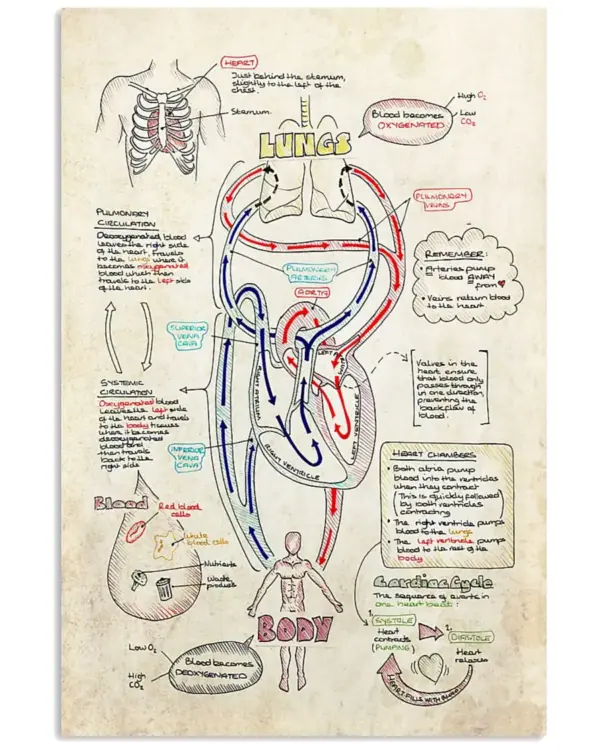 HEART
Just behind the sternum,
slightly to the left of the
chest.
Sternum.
LUNGS
Blood becomes
OXYGENATED
High O2
Low
CO2
PULMONARY
CIRCULATION
Deoxygenated blood
leaves the right side
of the heart, travels
to the lungs where it
becomes oxygenated
blood which then
travels to the left side
of the heart.
PULMONARY
VEINS
PULMONARY
ARTERIES
AORTA
REMEMBER:
• Arteries pump
blood AWAY
from
• Veins return blood
to the heart
SUPERIOR
VENA
CAVA
LEFT
RIGHT ATRIUM
LEFT VENTRICLE
RIGHT VENTRICLE
Valves in the
heart ensure
that blood only
passes through
in one direction,
preventing the
backflow of
blood.
SYSTEMIC
CIRCULATION
Oxygenated blood
leaves the left side
of the heart and travels
to the body tissues
where it becomes
deoxygenated
blood and
then travels
back to the
right side
INFERIOR
VENA
CAVA
HEART CHAMBERS
• Both atria pump
blood into the ventricles
when they contract
(This is quickly followed
by both ventricles
contracting)
• The right ventricle pumps
blood to the lungs
• The left ventricle pumps
blood to the rest of the
body
Blood
Red blood
cells
White
blood cells
Nutrients
Waste
products
BODY
Low O2
High
CO2
Blood becomes
DEOXYGENATED
Cardiac Cycle
The sequence of events in
one heart beat:
1.
SYSTOLE
Heart
contracts
(PUMPING)
2.
DIASTOLE
Heart
relaxes
HEART FILLS WITH BLOOD